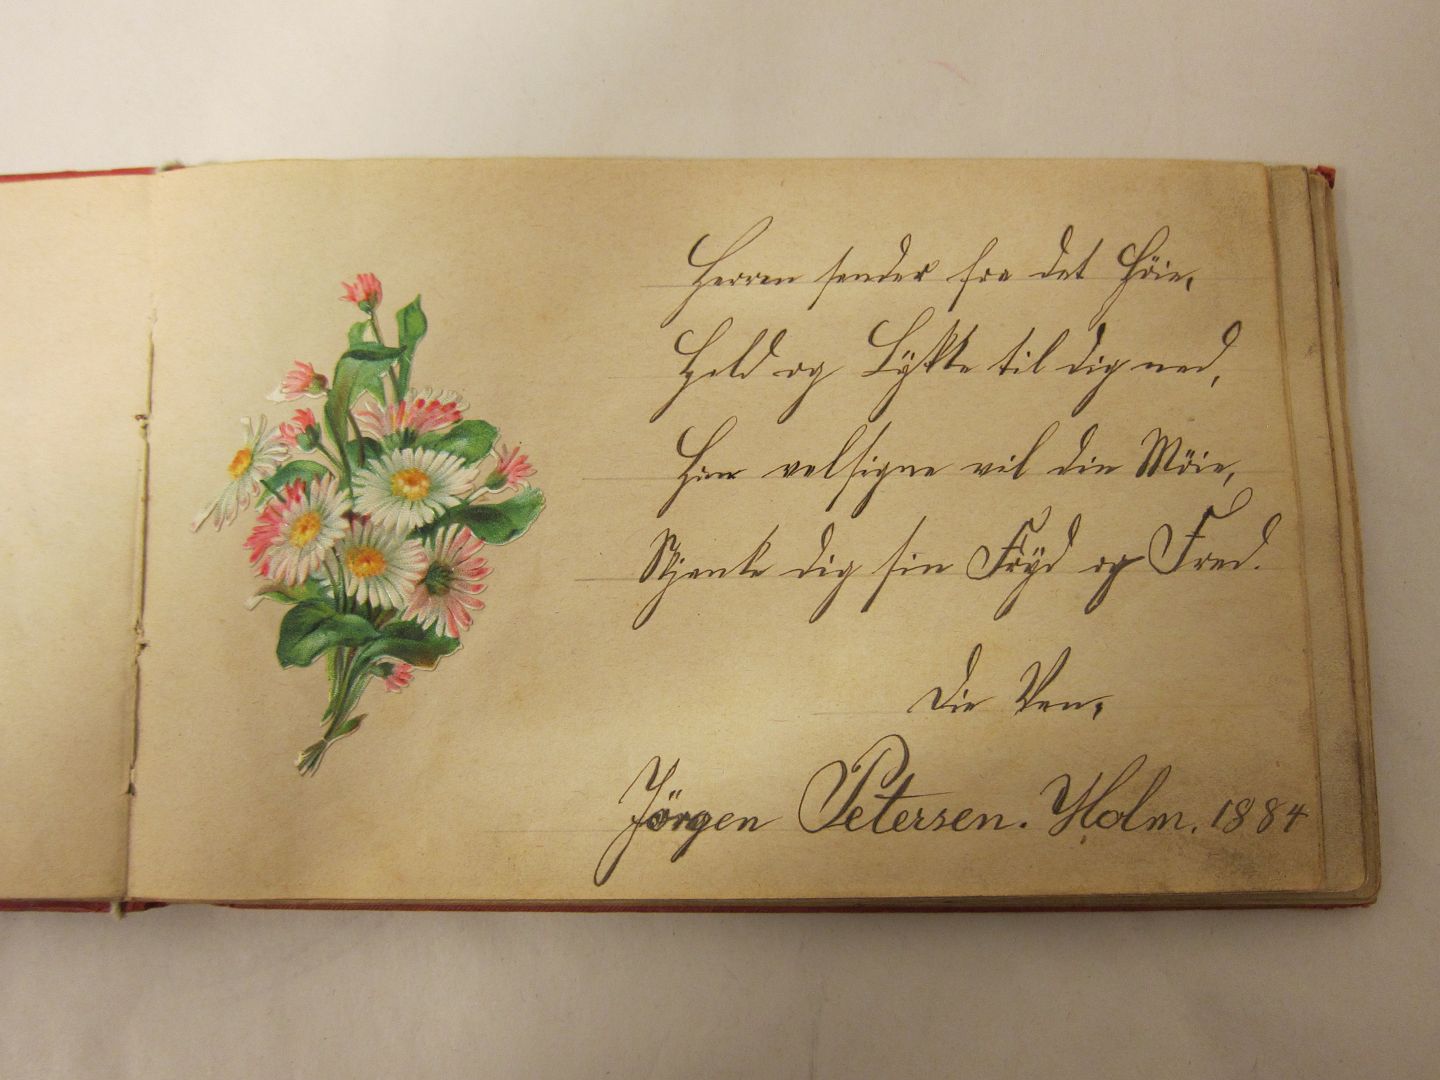 Herren sender fra det Höie,
Held og Lÿkke til dig ned,
Han velsigne vil din Möie,
Skjenke dig sin Frÿd og Fred.
Din Ven,
Jörgen Petersen. Holm. 1884